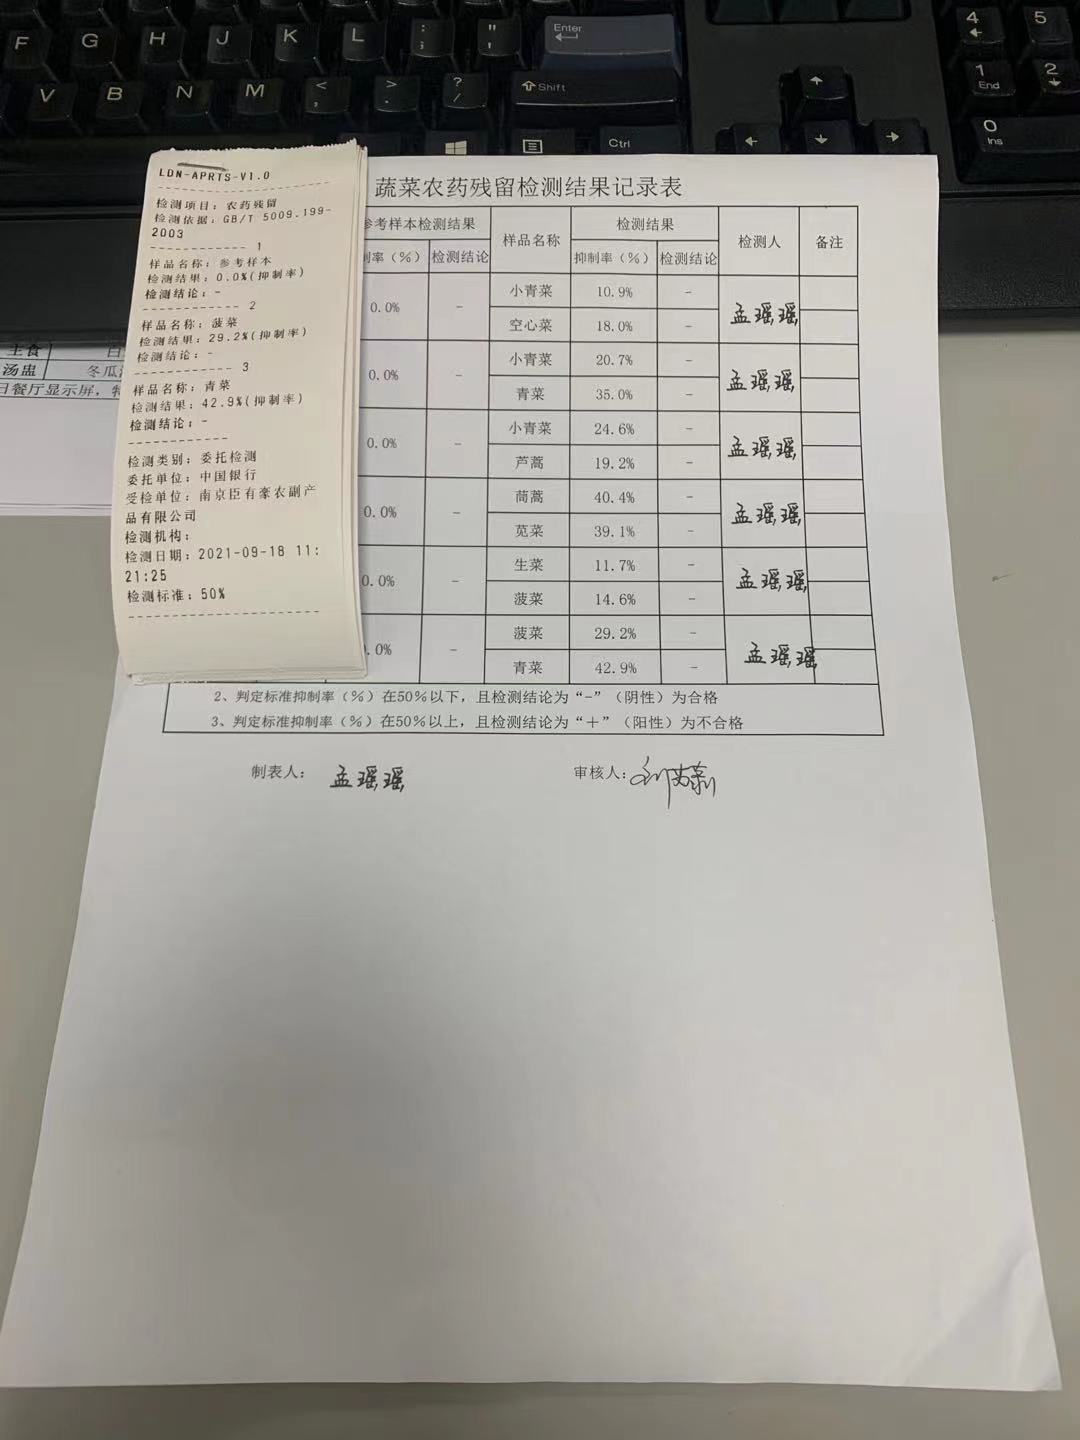 F G H J K L : ; " ' Enter 4 5
V B N M < , > . ? / Shift 1 End 2
Ctrl 0 Ins
LDN-APRTS-V1.0
检测项目：农药残留
检测依据：GB/T 5009.199-
2003
1
样品名称：参考样本
检测结果：0.0%(抑制率)
检测结论：-
2
样品名称：菠菜
检测结果：29.2%(抑制率)
检测结论：-
3
样品名称：青菜
检测结果：42.9%(抑制率)
检测结论：-
检测类别：委托检测
委托单位：中国银行
受检单位：南京臣有豪农副产
品有限公司
检测机构：
检测日期：2021-09-18 11:
21:25
检测标准：50%
主食 白
汤盅 冬瓜
日餐厅显示屏，特
蔬菜农药残留检测结果记录表
参考样本检测结果 样品名称 检测结果 检测人 备注
制率（%） 检测结论 抑制率（%） 检测结论
0.0% - 小青菜 10.9% - 孟瑶瑶
空心菜 18.0% -
0.0% - 小青菜 20.7% - 孟瑶瑶
青菜 35.0% -
0.0% - 小青菜 24.6% - 孟瑶瑶
芦蒿 19.2% -
0.0% - 茼蒿 40.4% - 孟瑶瑶
苋菜 39.1% -
0.0% - 生菜 11.7% - 孟瑶瑶
菠菜 14.6% -
0.0% - 菠菜 29.2% - 孟瑶瑶
青菜 42.9% -
2、判定标准抑制率（%）在50%以下，且检测结论为“-”（阴性）为合格
3、判定标准抑制率（%）在50%以上，且检测结论为“＋”（阳性）为不合格
制表人： 孟瑶瑶 审核人：